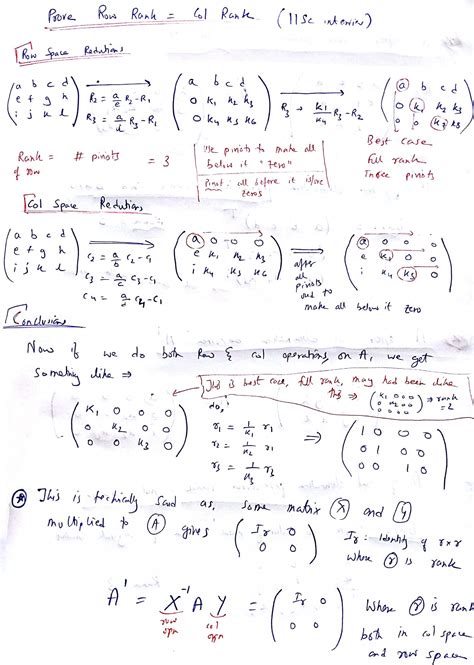 Prove Row Rank = Col Rank. (IISc interview)
Row Space Reductions
a b c d
e f g h
i j k l
R2 = a/e R2 - R1
R3 = a/i R3 - R1
a b c d
0 k1 k2 k3
0 k4 k5 k6
R3 → k1/k4 R3 - R2
a b c d
0 k1 k2 k3
0 0
Best case
full rank
Three pivots
Rank = # pivots = 3
of row
Use pivots to make all
below it "zero"
Pivot: all before it
zeros
Col Space Reductions
a b c d
e f g h
i j k l
C2 = a/b C2 - C1
C3 = a/c C3 - C1
C4 = a/d C4 - C1
a 0 0 0
e k1 k2 k3
i k4 k5 k6
after
all
pivots
used to
make all below it zero
a 0 0 0
e 0 0
i k4 0
Conclusions
Now if we do both Row & col operations on A, we get
something like ⇒
This is best case, full rank, may had been like
this ⇒ (k1 0 0 0 / 0 k2 0 0 / 0 0 0 0) ⇒ rank = 2
K1 0 0 0
0 K2 0 0
0 0 K3 0
do,
r1 = 1/k1 r1
r2 = 1/k2 r2
r3 = 1/k3 r3
⇒
1 0 0 0
0 1 0 0
0 0 1 0
This is technically said as, some matrix X and Y
multiplied to A gives (Ir 0 / 0 0) Ir: Identity of r×r
where r is rank
A' = X⁻¹ A Y = (Ir 0 / 0 0) where r is rank
row opn
col opn
both in col space
and row space